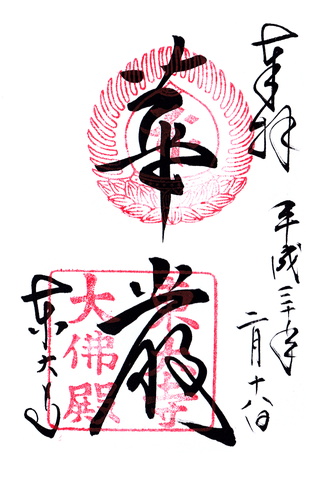 奉拝
平成三十年
二月十八日
華厳
東大寺
東大寺
大佛殿